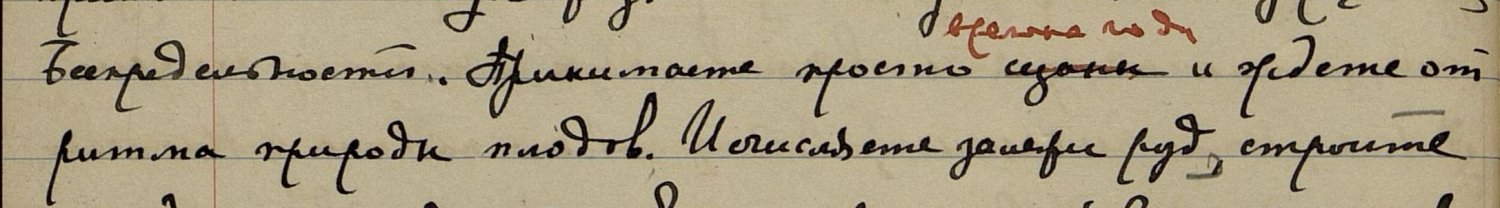 времена года
Беспредельности. Принимаете просто сезоны и ждете от
ритма природы плодов. Исчисляете залежи руд, строите